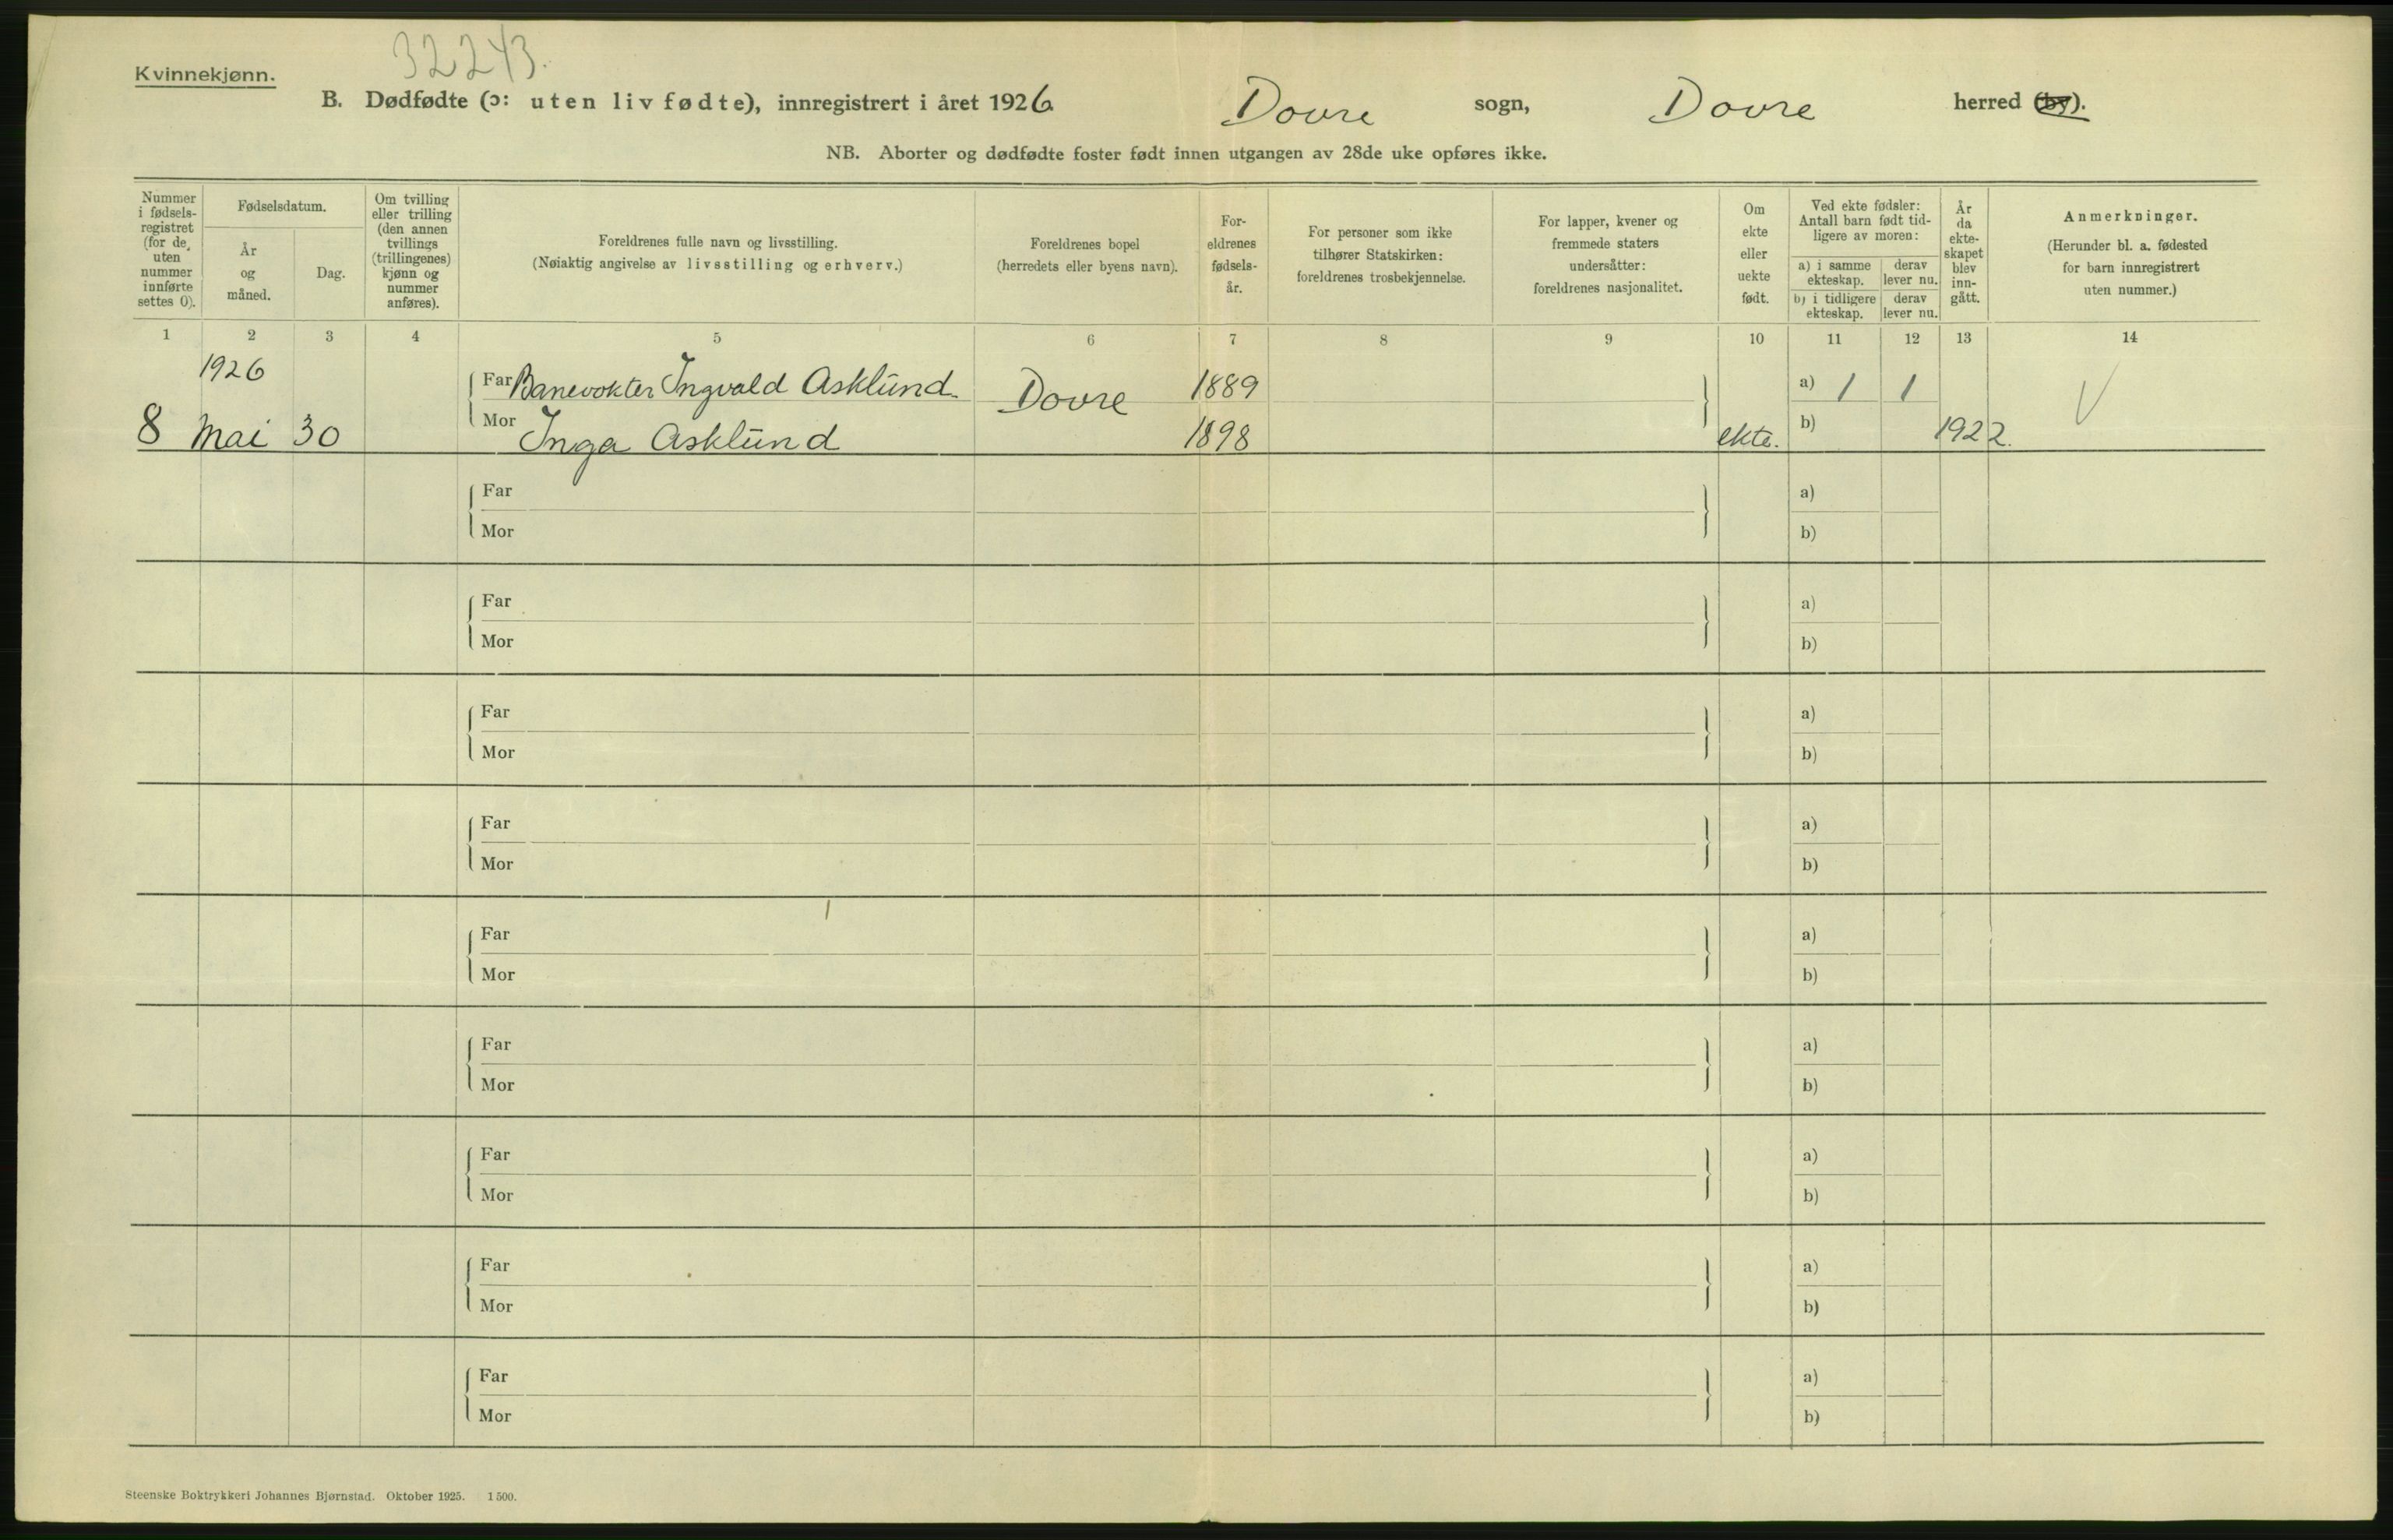 32243.
Kvinnekjønn.
B. Dødfødte (ɔ: uten liv fødte), innregistrert i året 1926 Dovre sogn, Dovre herred (by).
NB. Aborter og dødfødte foster født innen utgangen av 28de uke opføres ikke.
Nummer i fødsels-registret (for de uten nummer innførte settes 0).
Fødselsdatum.
År og måned.
Dag.
Om tvilling eller trilling (den annen tvillings (trillingenes) kjønn og nummer anføres).
Foreldrenes fulle navn og livsstilling.
(Nøiaktig angivelse av livsstilling og erhverv.)
Foreldrenes bopel
(herredets eller byens navn).
For-eldrenes fødsels-år.
For personer som ikke tilhører Statskirken: foreldrenes trosbekjennelse.
For lapper, kvener og fremmede staters undersåtter: foreldrenes nasjonalitet.
Om ekte eller uekte født.
Ved ekte fødsler: Antall barn født tid-ligere av moren:
a) i samme ekteskap.
derav lever nu.
b) i tidligere ekteskap.
derav lever nu.
År da ekte-skapet blev inn-gått.
Anmerkninger.
(Herunder bl. a. fødested for barn innregistrert uten nummer.)
1 2 3 4 5 6 7 8 9 10 11 12 13 14
1926
Far Banevokter Ingvald Asklund. Dovre 1889 a) 1 1
8 Mai 30 Mor Inga Asklund 1898 ekte. b) 1922.
Far a)
Mor b)
Far a)
Mor b)
Far a)
Mor b)
Far a)
Mor b)
Far a)
Mor b)
Far a)
Mor b)
Far a)
Mor b)
Far a)
Mor b)
Far a)
Mor b)
Steenske Boktrykkeri Johannes Bjørnstad. Oktober 1925. 1500.